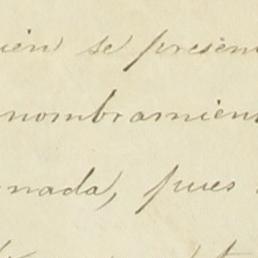 ien se presen
nombramien
nada, pues